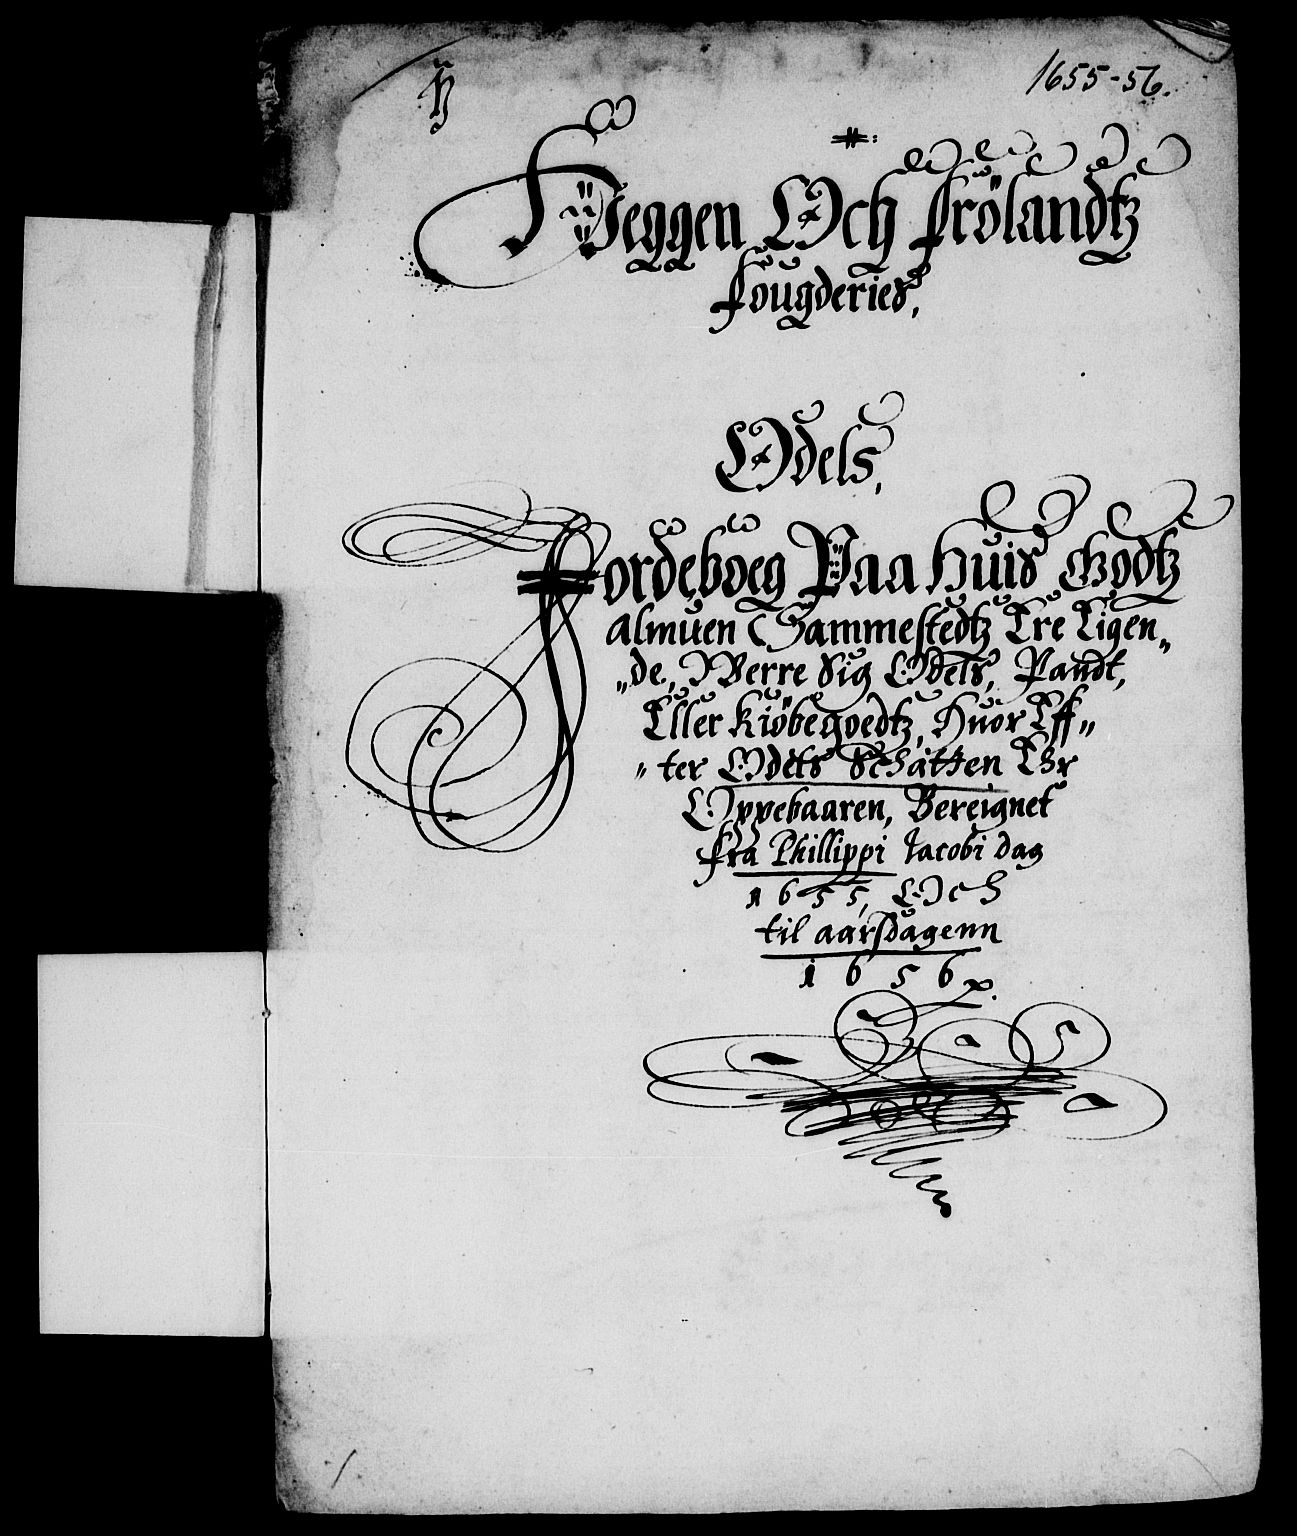 1655-56.
Heggen Och frölandtz
fougderies,
Odels,
Jordeboeg Paa huis Godtz
Almuen Sammestedtz Ere Eigen„
„de, Werre Sig Odels, Pandt,
Eller Kiöbegoedtz, Huor Eff„
„ter Odels Schatten Ehr
Oppebaaren, Bereignet
fra Phillippi Jacobi dag
1655, Och
til aarsdagenn
1656